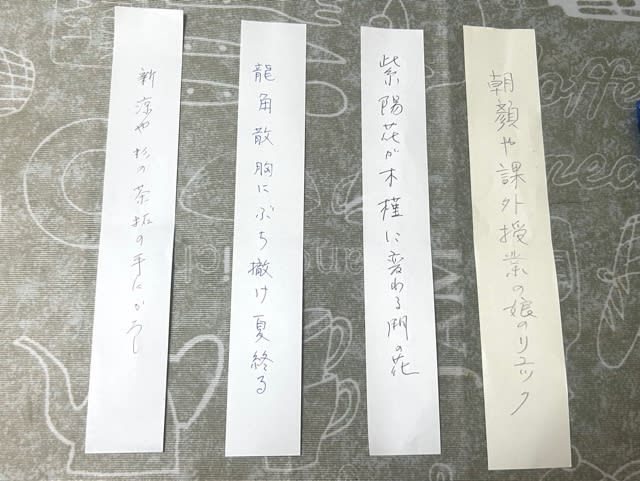 朝顔や課外授業の娘のリュック
紫陽花が木槿に変わる門の花
龍角散胸にぶち撒け夏終る
新涼や杉の茶拓の手にかろし